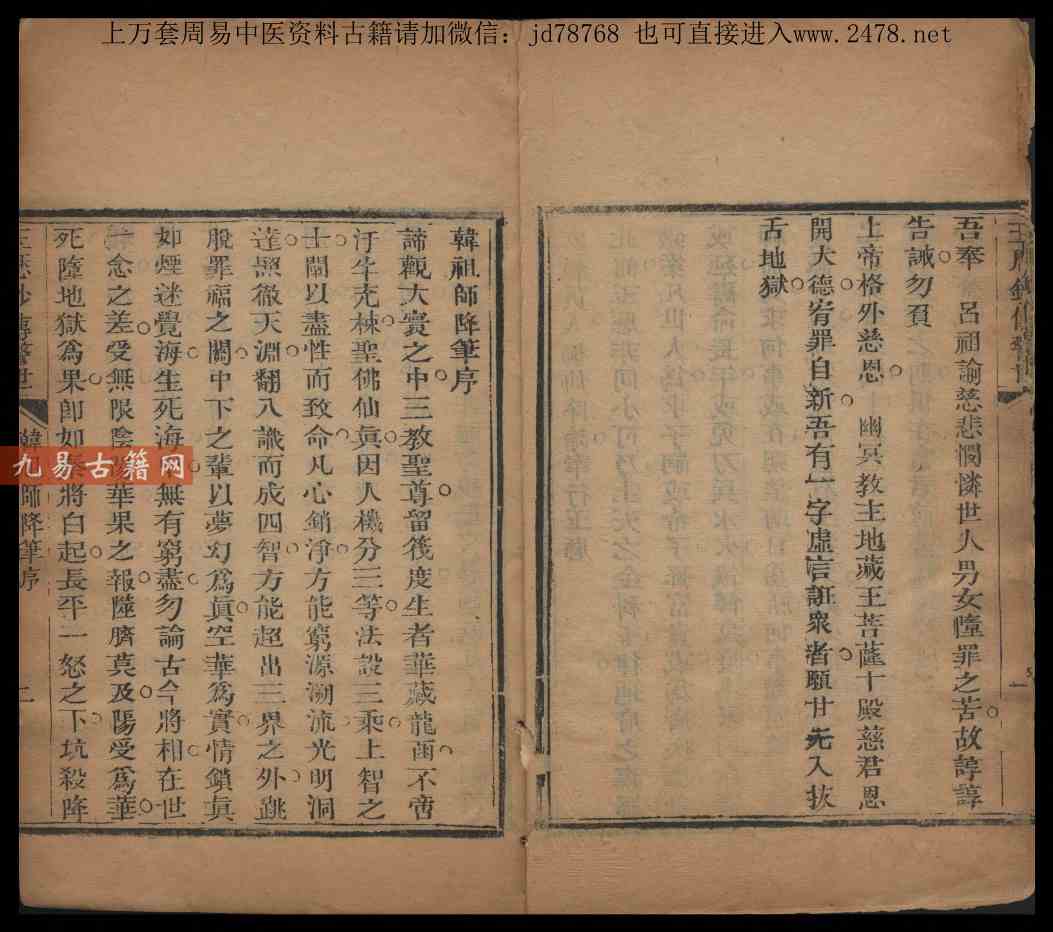 上万套周易中医资料古籍请加微信：jd78768 也可直接进入www.2478.net
吾奉 呂祖諭慈悲憫憐世人男女墮罪之苦故諄諄
告誡勿負
上帝格外慈恩 幽冥教主地藏王菩薩十殿慈君恩
開大德宥罪自新吾有一字虛言誑衆者願甘先入拔
舌地獄
一
韓祖師降筆序
諦觀大寰之中三教聖尊留筏度生者華藏龍函不啻
汗牛充棟聖佛仙眞因人機分三等法設三乘上智之
士闡以盡性而致命凡心銷淨方能窮源溯流光明洞
達照徹天淵翻八識而成四智方能超出三界之外跳
脫罪福之關中下之輩以夢幻爲眞空華爲實情鎖眞
如煙迷覺海生死海 無有窮盡勿論古今將相在世
一念之差受無限陰 華果之報噬臍莫及陽受爲華
死墮地獄爲果卽如秦將白起長平一怒之下坑殺降
師降筆序
九易古籍网